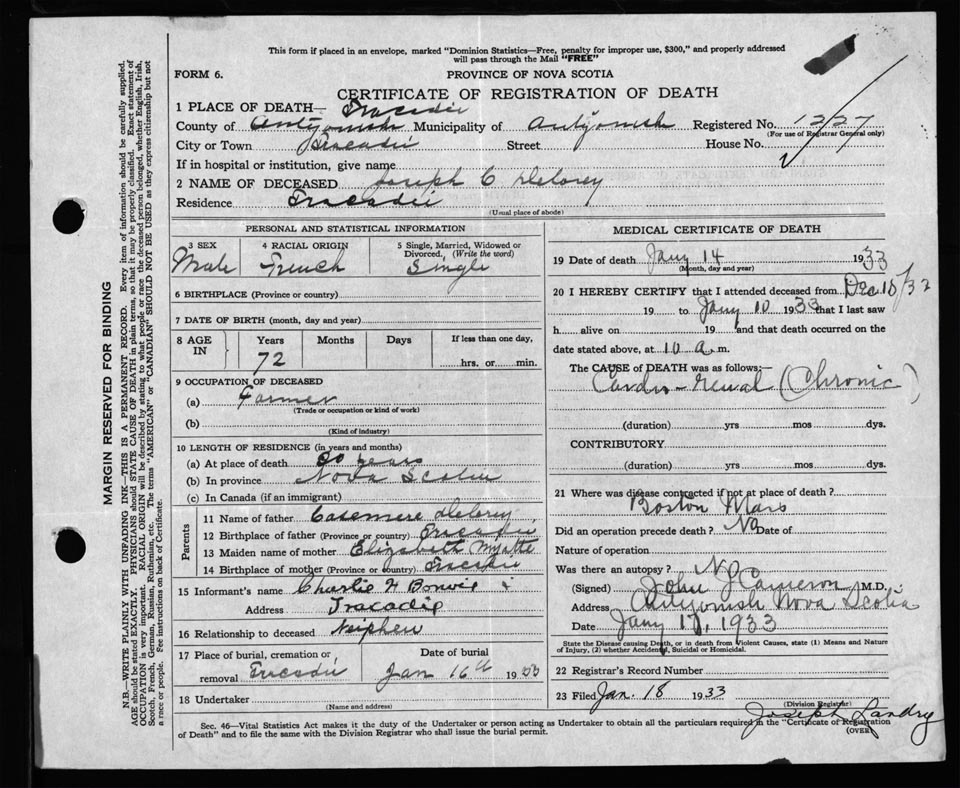 This form if placed in an envelope, marked "Dominion Statistics—Free, penalty for improper use, $300," and properly addressed
will pass through the Mail "FREE"
FORM 6.
PROVINCE OF NOVA SCOTIA
CERTIFICATE OF REGISTRATION OF DEATH
1 PLACE OF DEATH— Tracadie
County of Antigonish Municipality of Antigonish Registered No. 1227
(For use of Registrar General only)
City or Town Tracadie Street House No.
If in hospital or institution, give name
2 NAME OF DECEASED Joseph C Delorey
Residence Tracadie
(Usual place of abode)
PERSONAL AND STATISTICAL INFORMATION
3 SEX 4 RACIAL ORIGIN 5 Single, Married, Widowed or
Divorced, (Write the word)
Male French Single
6 BIRTHPLACE (Province or country)
7 DATE OF BIRTH (month, day and year)
8 AGE IN Years Months Days If less than one day,
72 hrs. or min.
9 OCCUPATION OF DECEASED
(a) Farmer
(Trade or occupation or kind of work)
(b)
(Kind of industry)
10 LENGTH OF RESIDENCE (in years and months)
(a) At place of death years
(b) In province Nova Scotia
(c) In Canada (if an immigrant)
Parents
11 Name of father Casemere Delorey
12 Birthplace of father (Province or country) Tracadie
13 Maiden name of mother Elizabeth Myatte
14 Birthplace of mother (Province or country) Tracadie
15 Informant's name Charlie H Bonvie
Address Tracadie
16 Relationship to deceased Nephew
17 Place of burial, cremation or Date of burial
removal Tracadie Jan 16th 1933
18 Undertaker
(Name and address)
MEDICAL CERTIFICATE OF DEATH
19 Date of death Jany 14 1933
(Month, day and year)
20 I HEREBY CERTIFY that I attended deceased from Dec 15/32
19 to Jany 10 1933 that I last saw
h alive on 19 and that death occurred on
date stated above, at 10 a. m.
The CAUSE of DEATH was as follows:—
Cardio-renal (Chronic)
(duration) yrs mos dys.
CONTRIBUTORY
(duration) yrs mos dys.
21 Where was disease contracted if not at place of death?
Boston Mass
Did an operation precede death? No Date of
Nature of operation
Was there an autopsy? No
(Signed) John J Cameron M.D.
Address Antigonish Nova Scotia
Date Jany 17, 1933
State the Disease causing Death, or in death from Violent Causes, state (1) Means and Nature
of Injury, (2) whether Accidental, Suicidal or Homicidal.
22 Registrar's Record Number
23 Filed Jan. 18 1933
(Division Registrar)
Joseph Landry
Sec. 46—Vital Statistics Act makes it the duty of the Undertaker or person acting as Undertaker to obtain all the particulars required in the "Certificate of Registration
of Death" and to file the same with the Division Registrar who shall issue the burial permit.
(OVER)
MARGIN RESERVED FOR BINDING
N.B.—WRITE PLAINLY WITH UNFADING INK—THIS IS A PERMANENT RECORD. Every item of information should be carefully supplied.
AGE should be stated EXACTLY. PHYSICIANS should STATE CAUSE OF DEATH in plain terms, so that it may be properly classified. Exact statement of
OCCUPATION is very important. RACIAL ORIGIN will be described by stating to what people or race the deceased person belonged, whether English, Irish,
Scotch, French, German, Russian, Ruthenian, etc. The terms "AMERICAN" or "CANADIAN" SHOULD NOT BE USED as they express citizenship but not
a race or people. See instructions on back of Certificate.